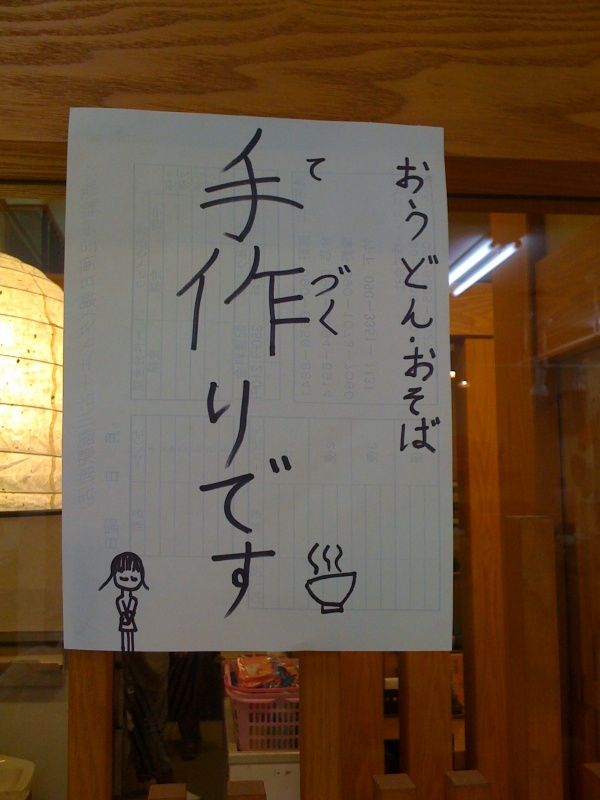 おうどん・おそば
手作りです
てづく